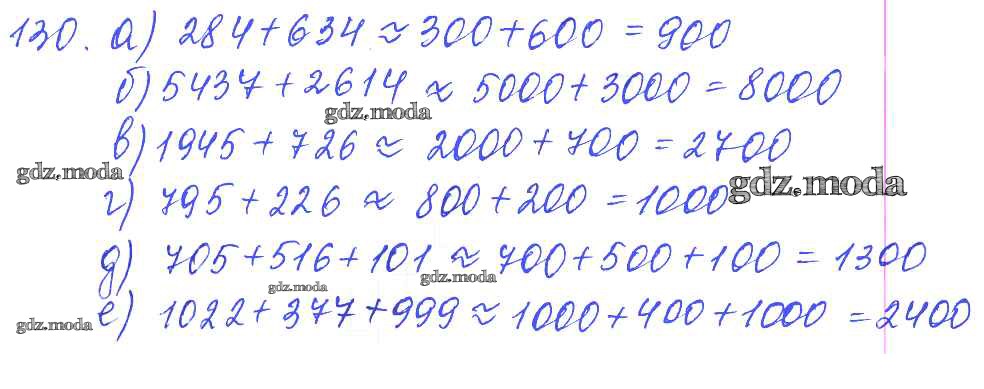 130. а) 284+634≈300+600=900
б) 5437+2614≈5000+3000=8000
gdz.moda
в) 1945+726≈2000+700=2700
gdz.moda
gdz.moda
г) 795+226≈800+200=1000
д) 705+516+101≈700+500+100=1300
gdz.moda
gdz.moda
е) 1022+377+999≈1000+400+1000=2400
gdz.moda